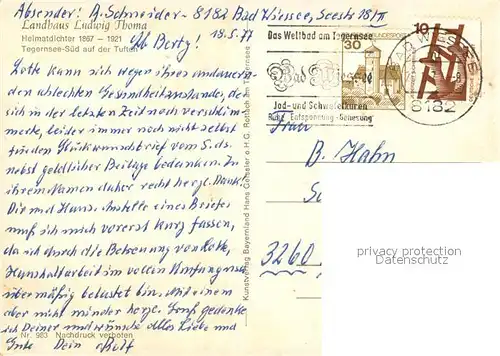 Absender! A. Schneider - 8182 Bad Wiessee, Seestr. 18/II
Landhaus Ludwig Thoma
Heimatdichter 1867 – 1921
Tegernsee-Süd auf der Tuften
18.5.77
Lb. Berty!
Lotte kann sich wegen ihres andauern-
den schlechten Gesundheitszustande, de
sich in der letzten Zeit noch verschlim-
merte, leider immer noch nicht selbst
für den Glückwunschbrief vom 5. ds.
nebst geldlicher Beilage bedanken. In
ihrem Namen daher recht herzl. Dank!
Dir und Hans. Anstelle eines Briefes
muß ich mich vorerst kurz fassen,
da ich durch die Betreuung von Lotte,
Haushaltarbeit im vollen Umfang usw.
übermäßig belastet bin. Mit einem
aber nicht minder herzl. Gruß gedenke
ich Deiner und wünsche alles Liebe und
Gute Dein
Nr. 983 Nachdruck verboten
Kunstverlag Bayernland Hans Gessler o.H.G. Rottach am Tegernsee
Das Weltbad am Tegernsee
Bad Wiessee
Jod- und Schwefelkuren
Ruhe Entspannung Genesung
30
10
BAD WIESSEE
8182
Frau
B. Hahn
3260
privacy protection
Datenschutz